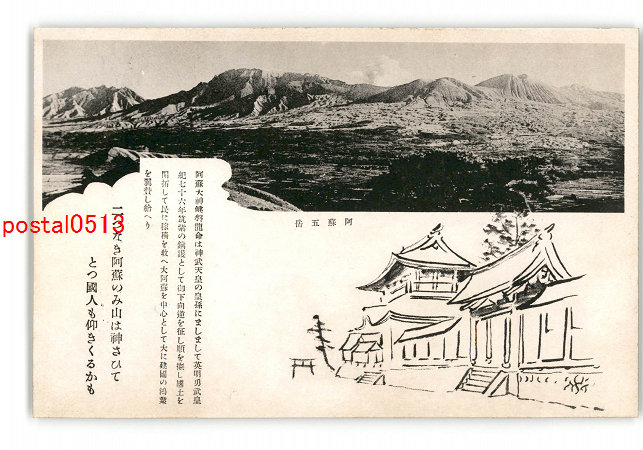 阿蘇五岳
阿蘇大神健磐龍命は神武天皇の皇孫にましまして英明勇武皇
紀七十六年筑紫の鎭護として御下向逆を征し順を撫し國土を
開拓して民に稼穡を敎へ大阿蘇を中心として大に建國の鴻業
を翼賛し給へり
二つなき阿蘇のみ山は神さびて
とつ國人も仰きくるかも
postal0513